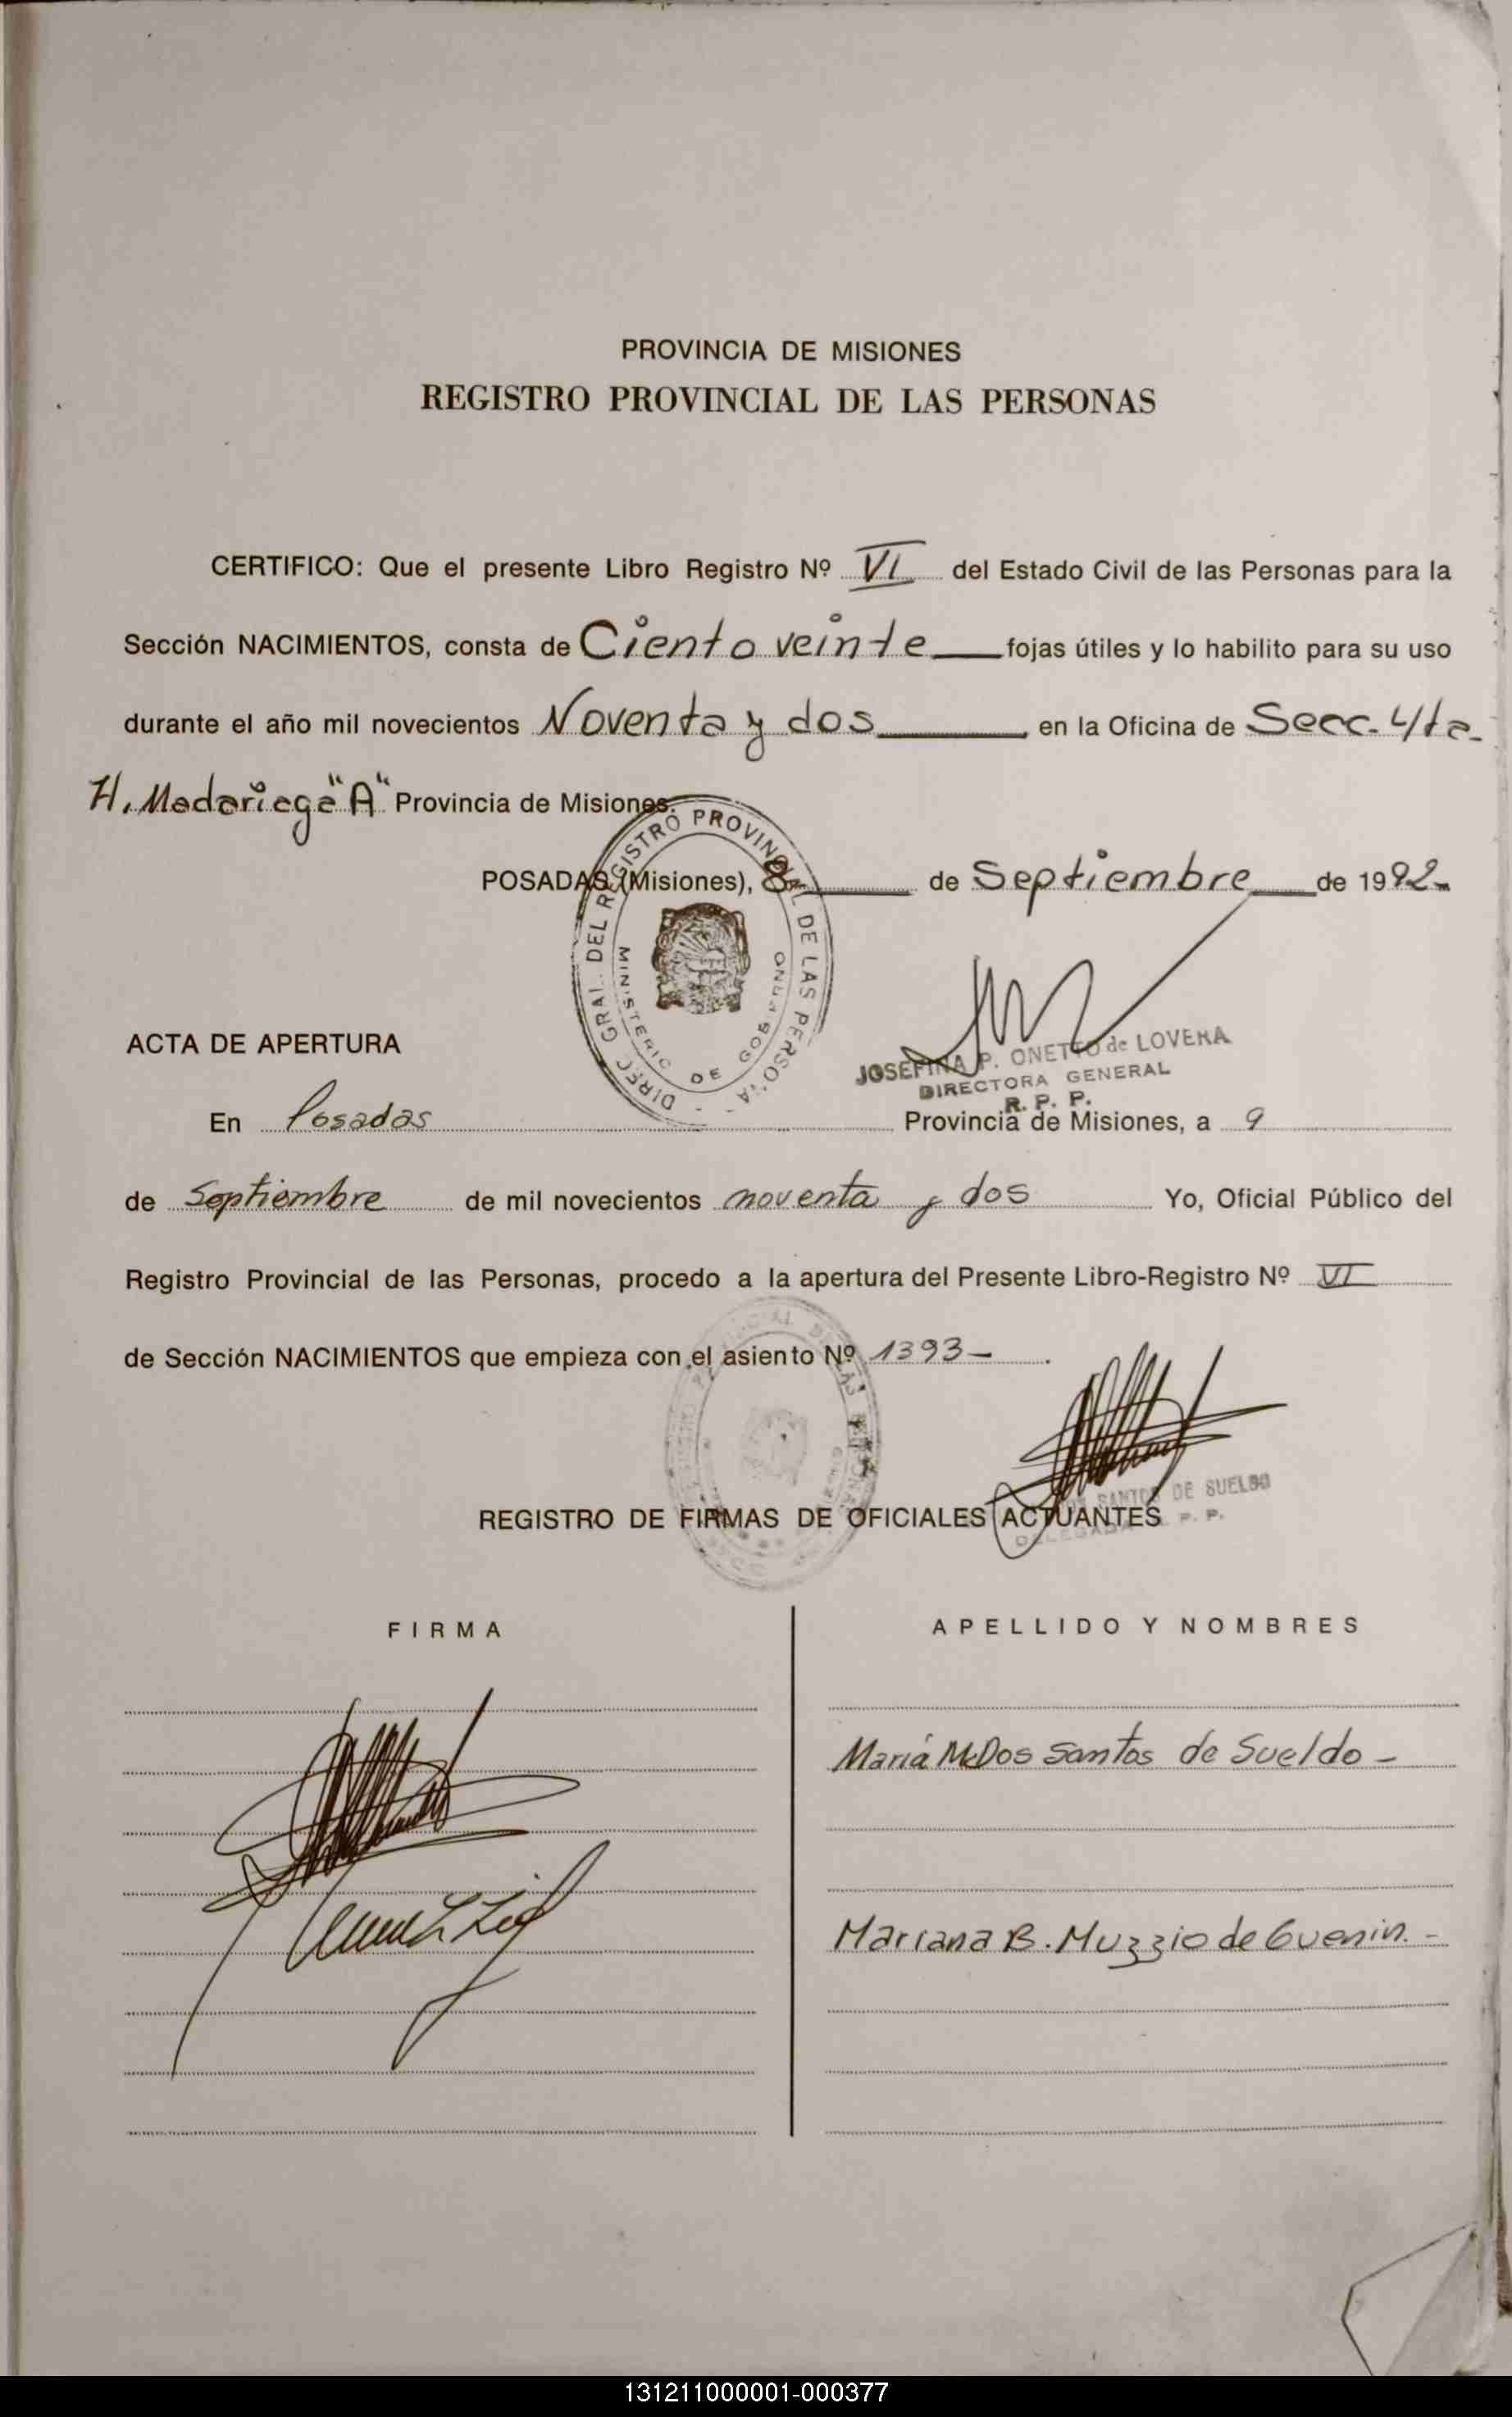 PROVINCIA DE MISIONES
REGISTRO PROVINCIAL DE LAS PERSONAS
CERTIFICO: Que el presente Libro Registro Nº VI del Estado Civil de las Personas para la
Sección NACIMIENTOS, consta de Ciento veinte fojas útiles y lo habilito para su uso
durante el año mil novecientos Noventa y dos en la Oficina de Secc. 4ta.
H. Madariaga "A" Provincia de Misiones.
POSADAS (Misiones), 8 de Septiembre de 1992.
DIREC. GRAL. DEL REGISTRO PROVINCIAL DE LAS PERSONAS
MINISTERIO DE GOBIERNO
JOSEFINA P. ONETTO de LOVERA
DIRECTORA GENERAL
R. P. P.
ACTA DE APERTURA
En Posadas Provincia de Misiones, a 9
de Septiembre de mil novecientos noventa y dos Yo, Oficial Público del
Registro Provincial de las Personas, procedo a la apertura del Presente Libro-Registro Nº VI
de Sección NACIMIENTOS que empieza con el asiento Nº 1393-.
SANTOS DE SUELDO
DELEGADA P. P.
REGISTRO DE FIRMAS DE OFICIALES ACTUANTES
FIRMA
APELLIDO Y NOMBRES
María M. Dos Santos de Sueldo -
Mariana B. Muzzio de Guenin. -
131211000001-000377